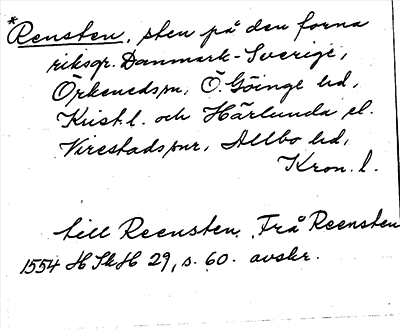 *Rensten, sten på den forna
riksgr. Danmark-Sverige,
Örkenedsn, Ö. Göinge hd,
Krist. l. och Härlunda el.
Virestads snr, Allbo hd,
Kron. l.
till Reensten, Frå Reensten
1554 HSkH 29, s. 60. avskr.